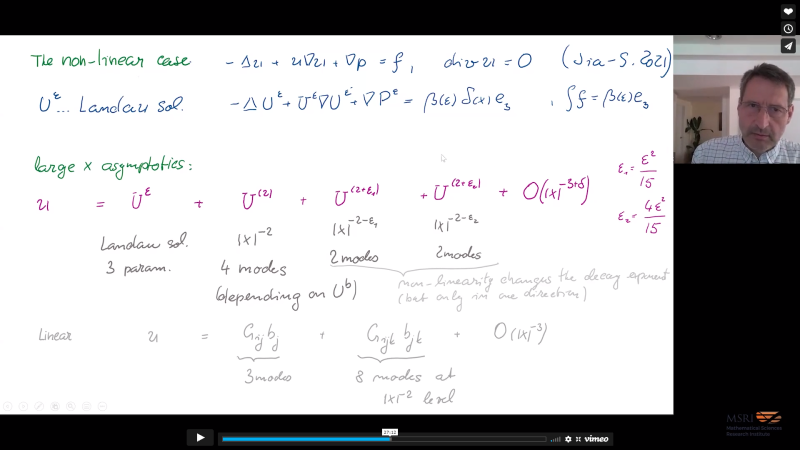 The non-linear case -Δu + u∇u + ∇p = f, div u = 0 (Jia-S. 2021)
U^ε ... Landau sol. -ΔU^ε + U^ε∇U^ε + ∇P^ε = β(ε) δ(x) e_3 , ∫f = β(ε) e_3
large x asymptotics:
u = U^ε + U^(2) + U^(2+ε_1) + U^(2+ε_2) + O(|x|^-3+δ)
ε_1 = ε^2/15
ε_2 = 4ε^2/15
Landau sol. |x|^-2 |x|^-2-ε_1 |x|^-2-ε_2
3 param. 4 modes 2 modes 2 modes
(depending on U^b) non-linearity changes the decay exponent
(but only in one direction)
Linear u = G_ij b_j + G_ijk b_jk + O(|x|^-3)
3 modes 8 modes at
|x|^-2 level
27:12
vimeo
MSRI
Mathematical Sciences
Research Institute